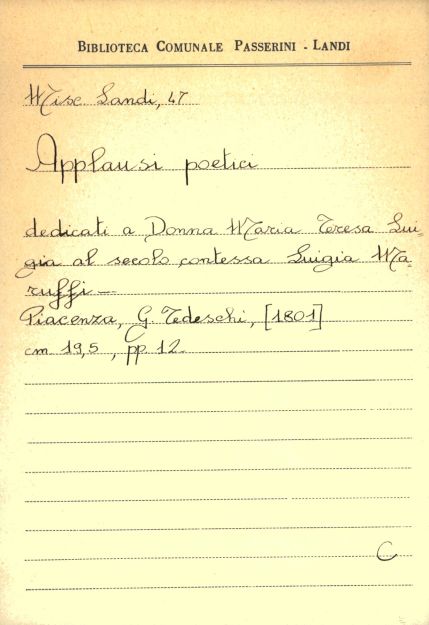 BIBLIOTECA COMUNALE PASSERINI - LANDI
Misc. Landi, 47
Applausi poetici
dedicati a Donna Maria Teresa Lui-
gia al secolo contessa Luigia Ma-
ruffi —
Piacenza, G. Tedeschi, [1801]
cm. 19,5, pp. 12.
C